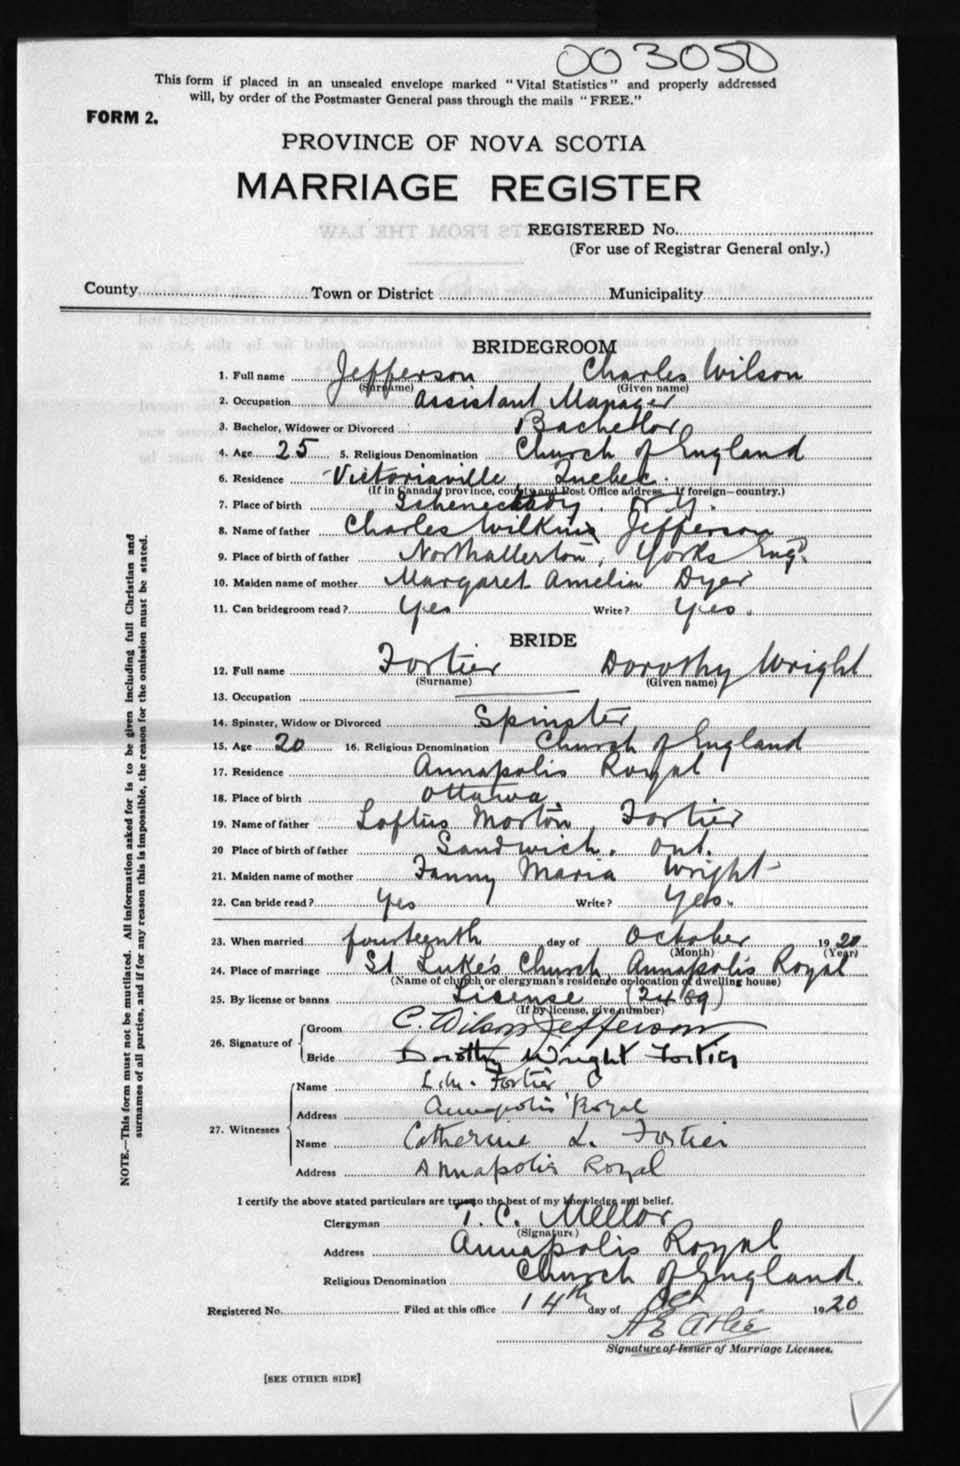 003050
This form if placed in an unsealed envelope marked "Vital Statistics" and properly addressed
will, by order of the Postmaster General pass through the mails "FREE."
FORM 2.
PROVINCE OF NOVA SCOTIA
MARRIAGE REGISTER
REGISTERED No.
(For use of Registrar General only.)
County Town or District Municipality
BRIDEGROOM
1. Full name Jefferson Charles Wilson
(Surname) (Given name)
2. Occupation Assistant Manager
3. Bachelor, Widower or Divorced Bachelor
4. Age 25 5. Religious Denomination Church of England
6. Residence Victoriaville, Quebec.
(If in Canada, province, county and Post Office address. If foreign—country.)
7. Place of birth Schenectady.
8. Name of father Charles Jefferson
9. Place of birth of father Northallerton, Yorks Eng.
10. Maiden name of mother Margaret Amelia Dyer
11. Can bridegroom read? Yes Write? Yes.
BRIDE
12. Full name Fortier Dorothy Wright
(Surname) (Given name)
13. Occupation
14. Spinster, Widow or Divorced Spinster
15. Age 20 16. Religious Denomination Church of England
17. Residence Annapolis Royal
18. Place of birth Ottawa
19. Name of father Loftus Morton Fortier
20 Place of birth of father Sandwich. Ont.
21. Maiden name of mother Fanny Maria Wright
22. Can bride read? Yes Write? Yes.
23. When married fourteenth day of October 1920
(Month) (Year)
24. Place of marriage St Luke's Church, Annapolis Royal
(Name of church or clergyman's residence or location of dwelling house)
25. By license or banns License (2489)
(If by license, give number)
26. Signature of Groom C. Wilson Jefferson
Bride Dorothy Wright Fortier
27. Witnesses Name L.M. Fortier
Address Annapolis Royal
Name Catherine L. Fortier
Address Annapolis Royal
I certify the above stated particulars are true to the best of my knowledge and belief.
Clergyman T. C. Mellor
(Signature)
Address Annapolis Royal
Religious Denomination Church of England.
Registered No. Filed at this office 14th day of Oct 1920
Signature of Issuer of Marriage Licenses.
[SEE OTHER SIDE]
NOTE.—This form must not be mutilated. All information asked for is to be given including full Christian and
surnames of all parties, and if for any reason this is impossible, the reason for the omission must be stated.